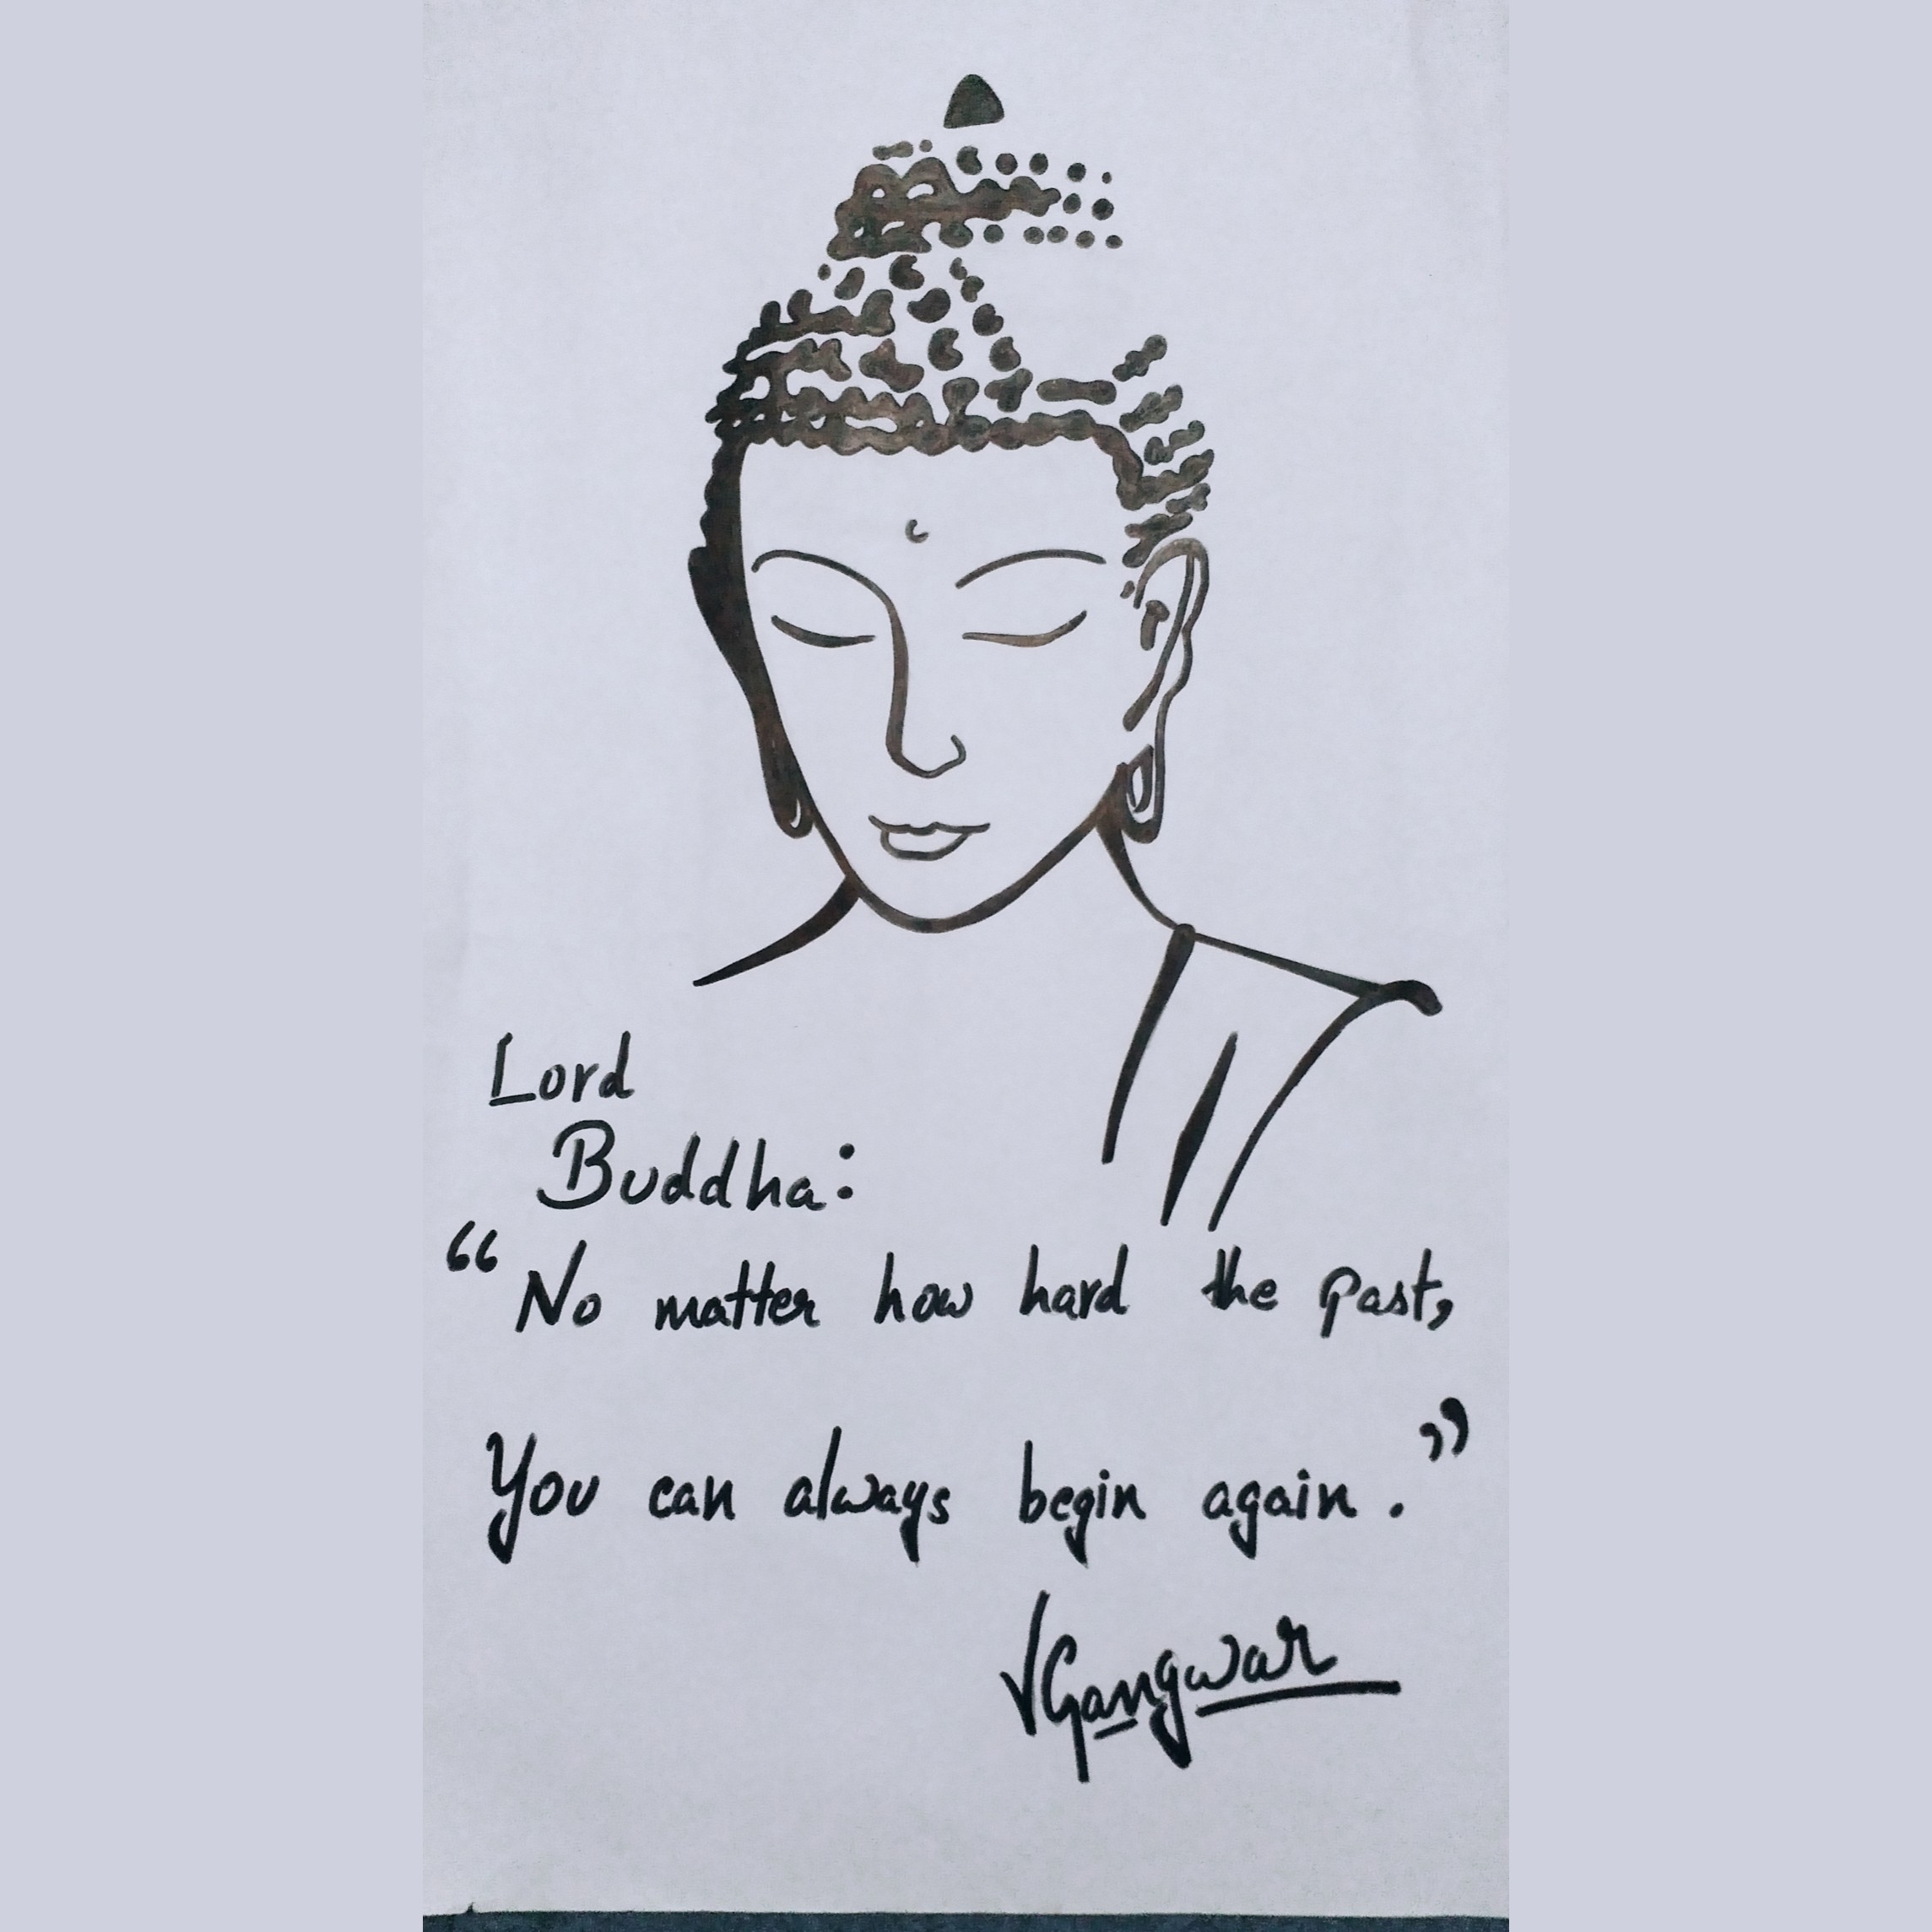 Lord
Buddha:
“No matter how hard the past,
You can always begin again.”
VGangwar